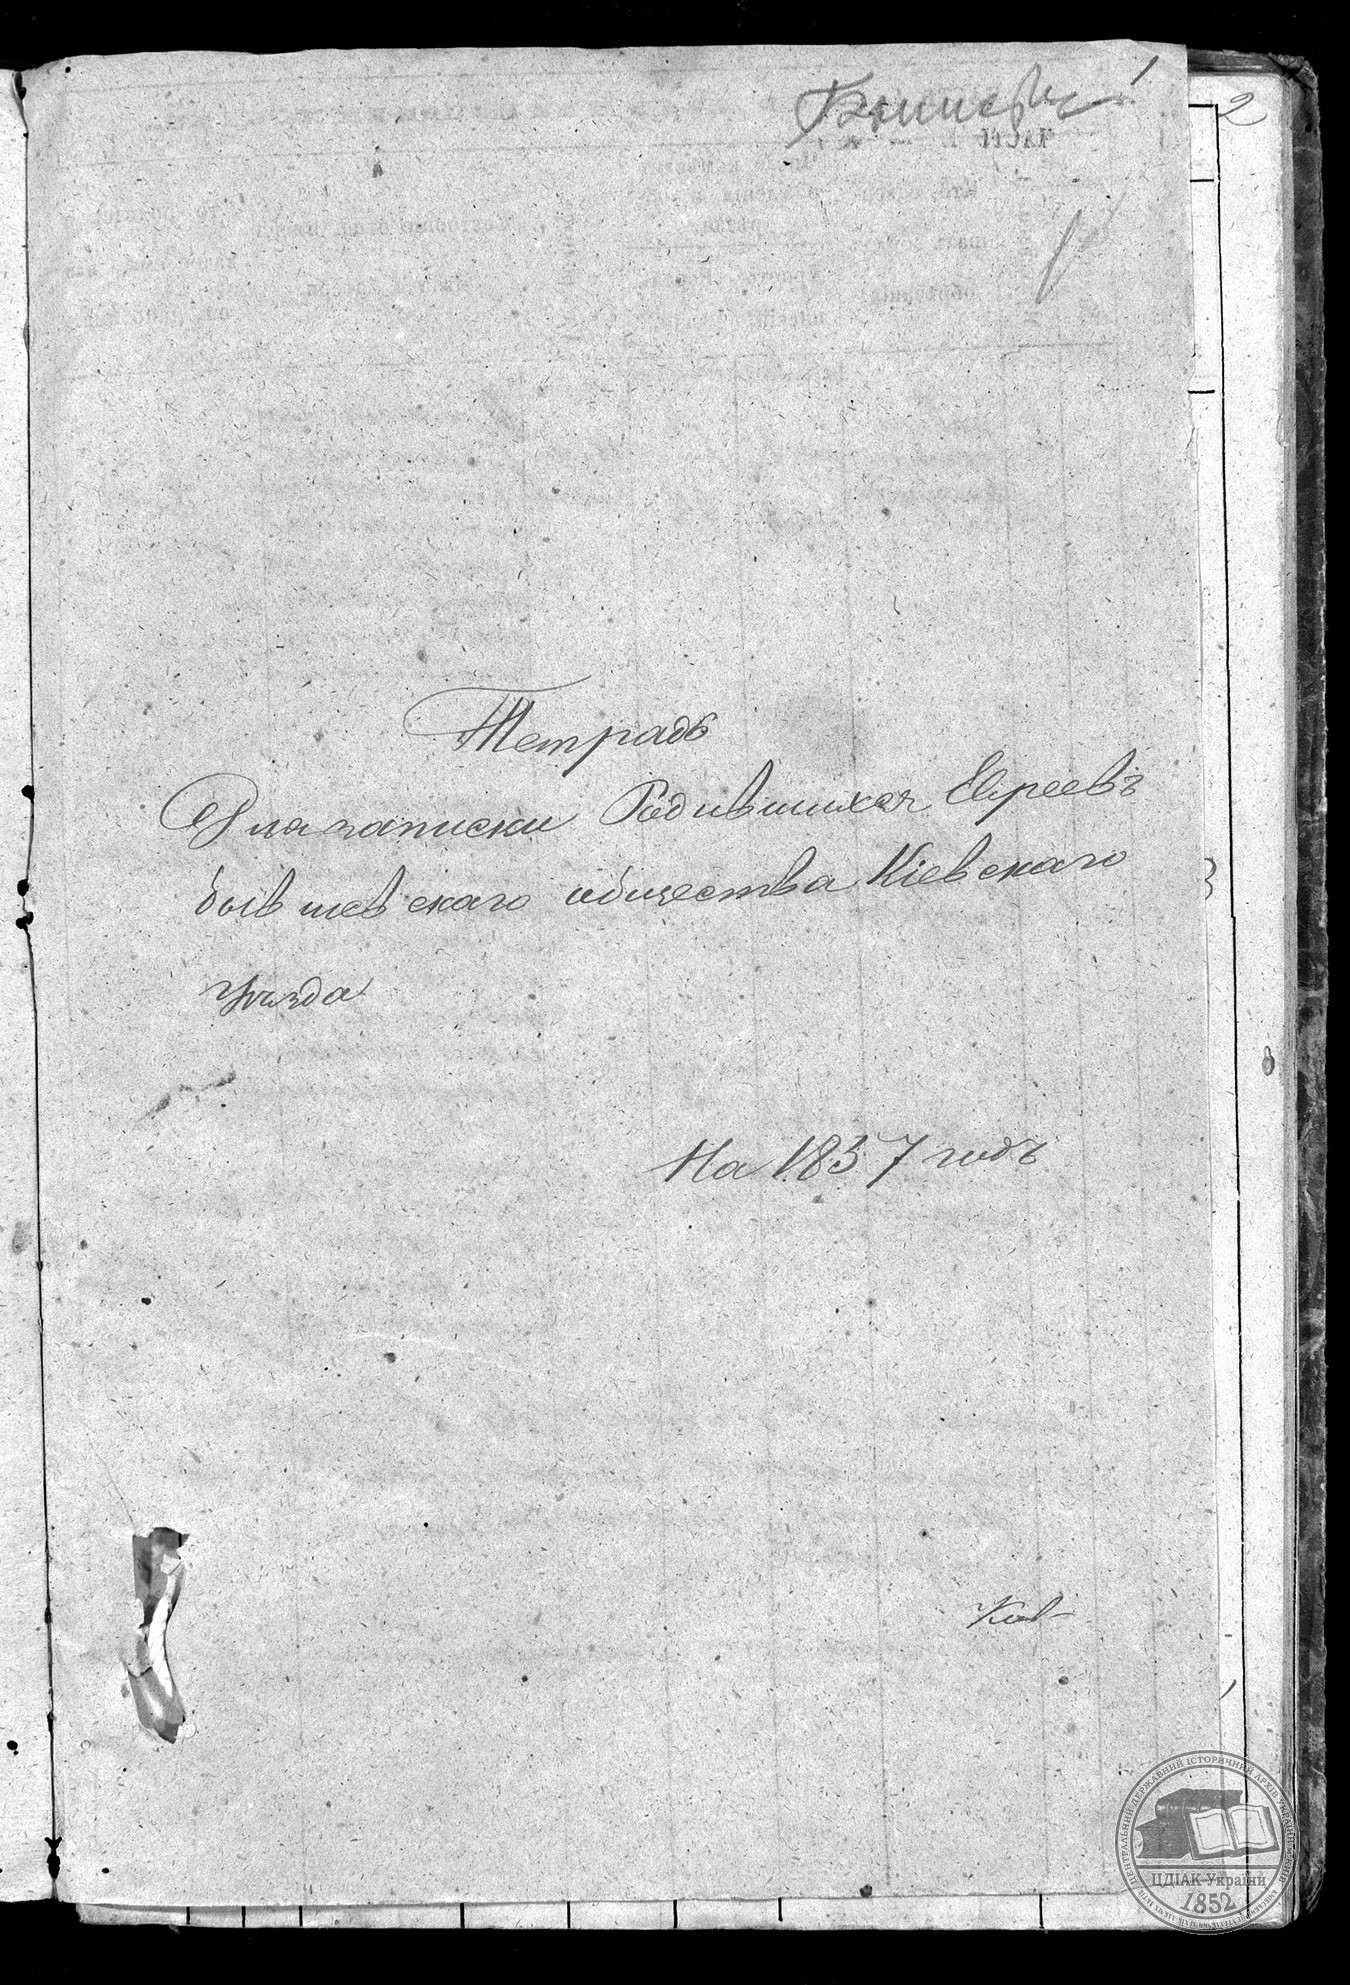 1
2
Тетрадь
Для записки Родившихся Евреевъ
бывшевскаго общества Кіевскаго
уѣзда
На 1857 годъ
Кив-
ЦЕНТРАЛЬНИЙ ДЕРЖАВНИЙ ІСТОРИЧНИЙ АРХІВ УКРАЇНИ
ЦДІАК України
1852